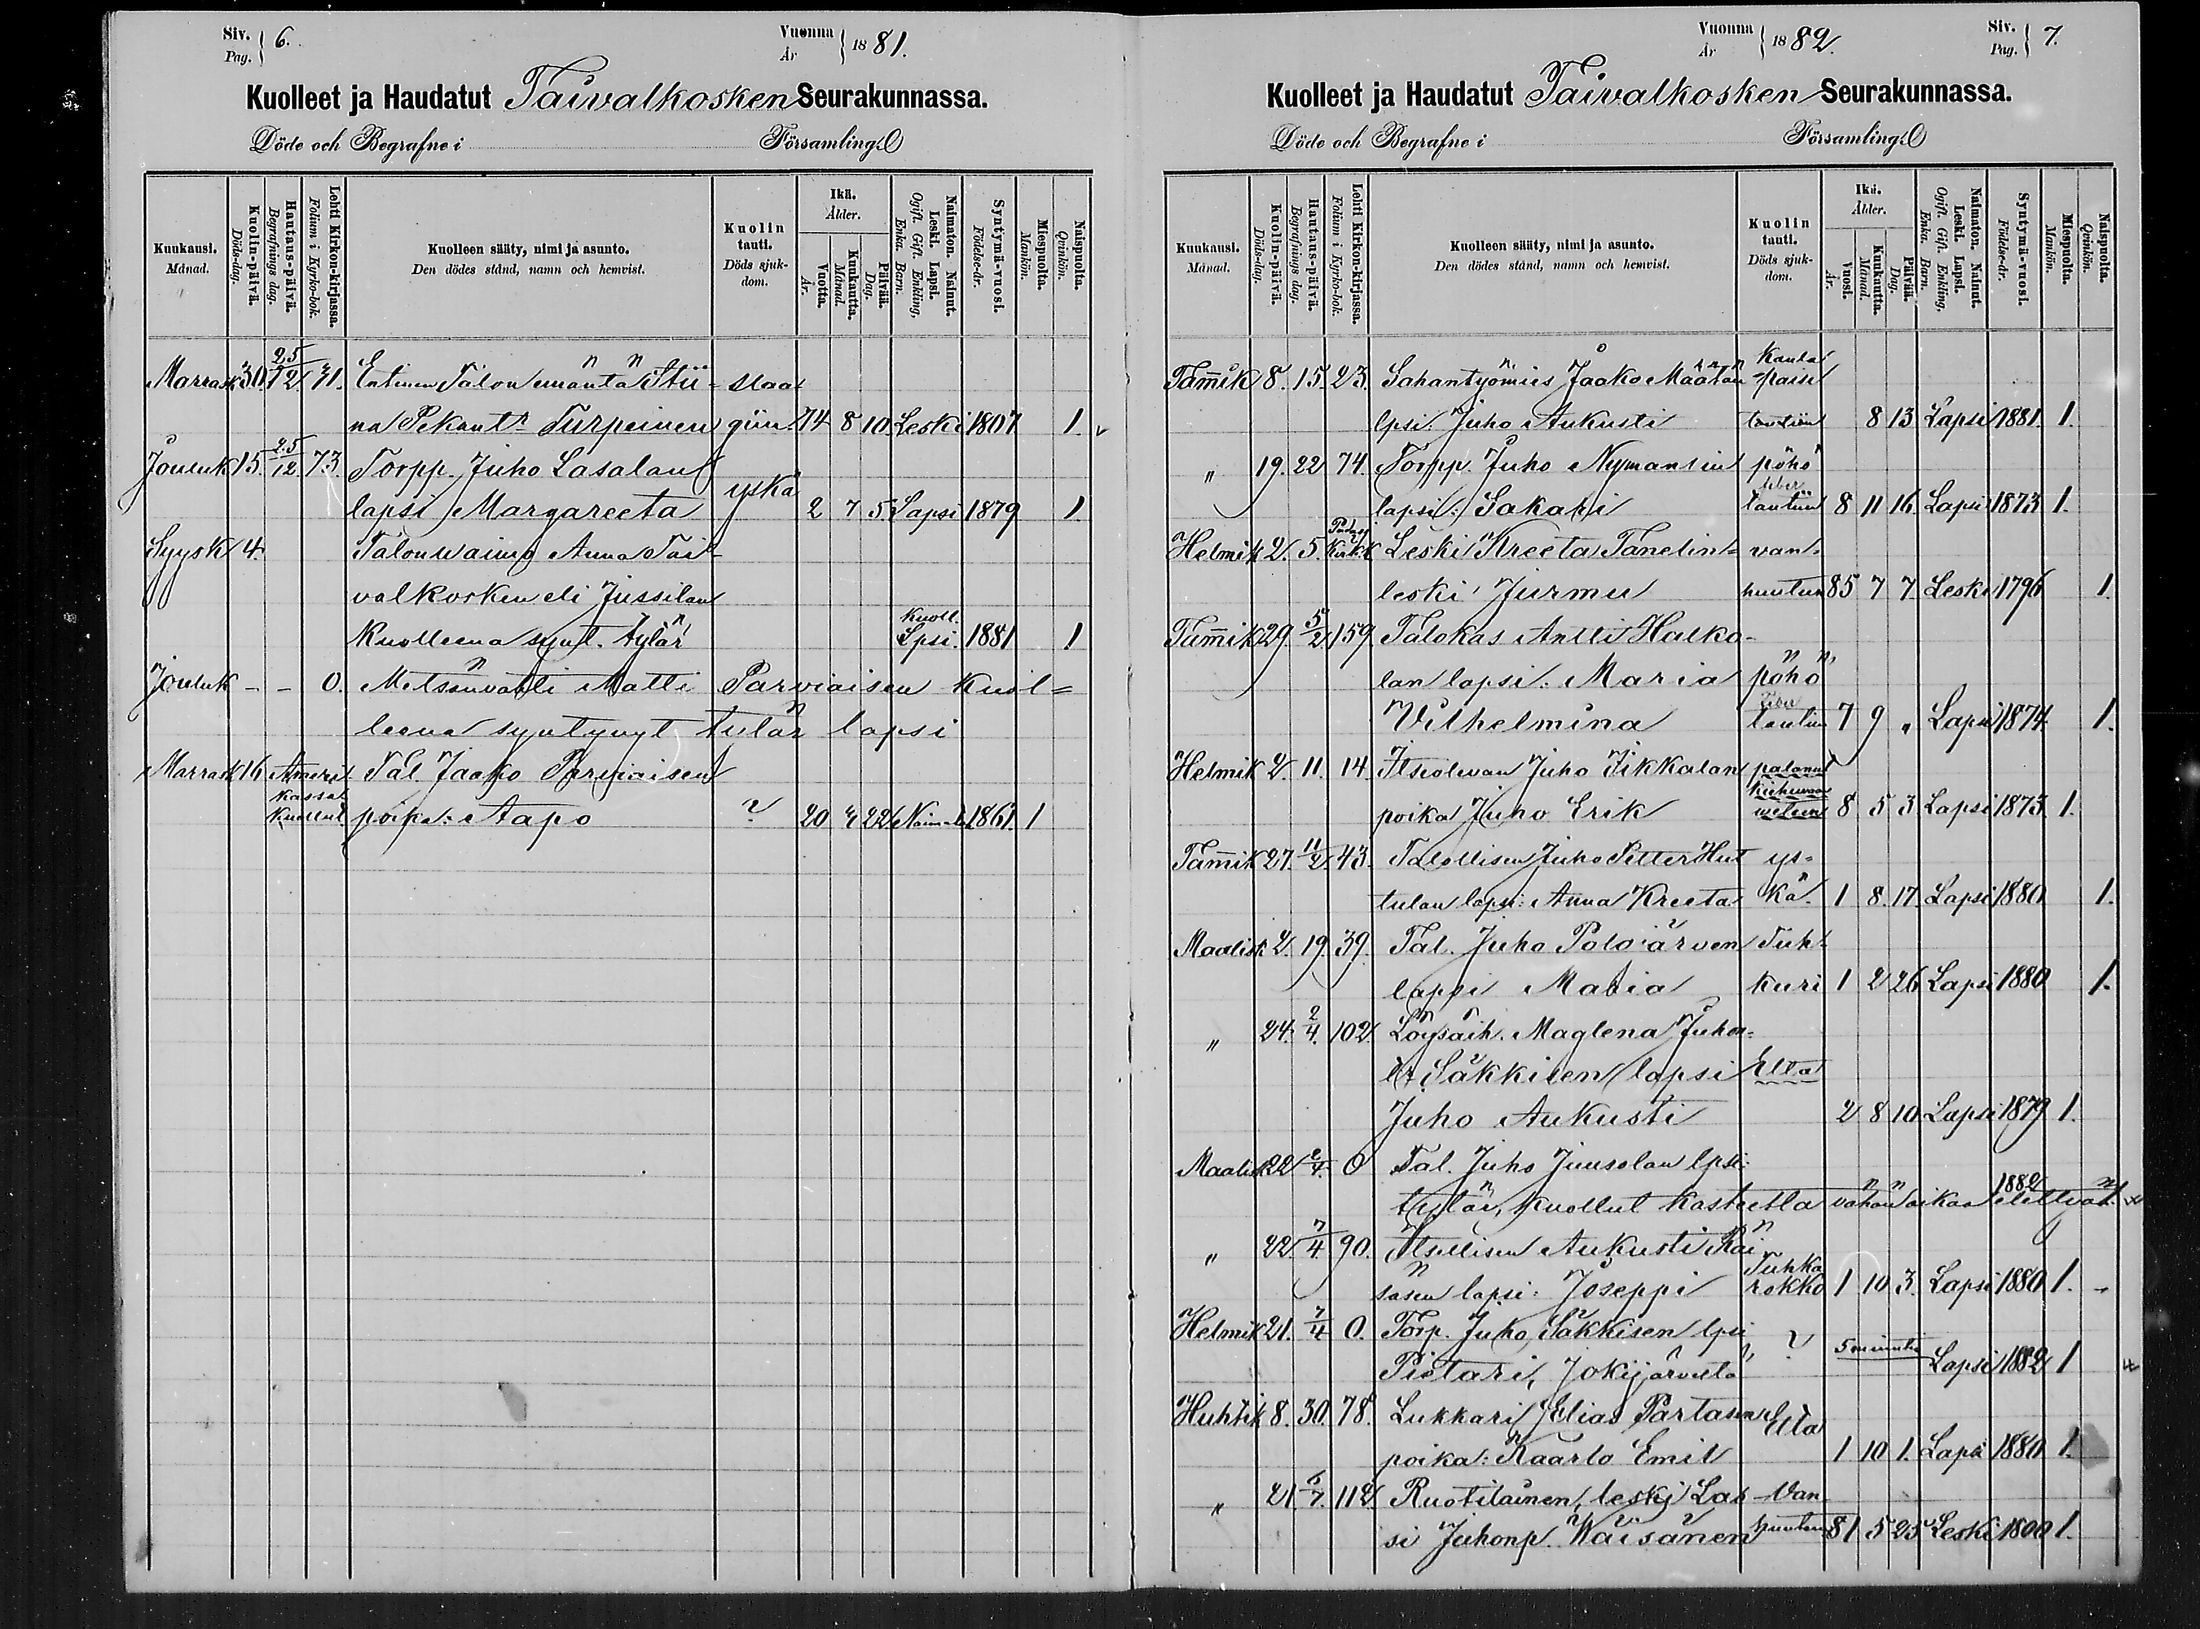 Siv. Pag. 6.
Vuonna År 1881.
Kuolleet ja Haudatut Taivalkosken Seurakunnassa.
Döde och Begrafne i Församling.
Kuukausi. Månad.
Kuolin-päivä. Döds-dag.
Hautaus-päivä. Begrafnings dag.
Lehti Kirkon-kirjassa. Folium i Kyrko-bok.
Kuolleen sääty, nimi ja asunto. Den dödes stånd, namn och hemvist.
Kuolin tauti. Döds sjukdom.
Ikä. Ålder.
Vuotta. År.
Kuukautta. Månad.
Päivää. Dag.
Naimaton. Nainut. Leski. Lapsi. Ogift. Gift. Enkling, Enka. Barn.
Syntymä-vuosi. Födelse-år.
Miespuolta. Mankön.
Naispuolta. Qvinkön.
Marrask 30. 25/12 71. Entinen Talon emäntä Stii- slaa
na Pekant. Turpeinen giin 74 8 10 Leski 1807 1.
Jouluk 15. 25/12 73 Torpp. Juho Lasalan
lapsi Margareeta yskä 2 7 5 Lapsi 1879 1
Syysk 4. Talonwaimo Anna Tai-
valkosken eli Jussilan
Kuolleena synt. tytär Kuoll. Lpsi. 1881 1
Jouluk - - 0. Metsänvahti Matti Parviaisen Kuol=
leena syntynyt tytär lapsi
Marrask 16 Ameri Tal. Jaako Parviaisen
kassa kuollut poika: Aapo ? 20 4 22 Naim. 1861. 1
Vuonna År 1882.
Siv. Pag. 7.
Kuolleet ja Haudatut Taivalkosken Seurakunnassa.
Döde och Begrafne i Församling.
Kuukausi. Månad.
Kuolin-päivä. Döds-dag.
Hautaus-päivä. Begrafnings dag.
Lehti Kirkon-kirjassa. Folium i Kyrko-bok.
Kuolleen sääty, nimi ja asunto. Den dödes stånd, namn och hemvist.
Kuolin tauti. Döds sjukdom.
Ikä. Ålder.
Vuosi. År.
Kuukautta. Månad.
Päivää. Dag.
Naimaton. Nainut. Leski. Lapsi. Ogift. Gift. Enkling, Enka. Barn.
Syntymä-vuosi. Födelse-år.
Miespuolta. Mankön.
Naispuolta. Qvinkön.
Tammik 8. 15. 23. Sahantyömies Jaako Määtän paise
lpsi. Juho Aukusti tautiin 8 13 Lapsi 1881. 1.
" 19. 22 74. Torpp. Juho Nymansin pöhö
lapsi: Sakari tautiin 8 11 16 Lapsi 1873 1.
Helmik 2. 5. Leski Kreeta Tanelin= van-
leski Jurmu huuteen 85 7 7 Leski 1796 1.
Tammik 29. 5/2 159 Talokas Antti Halko-
lan lapsi: Maria pöhö
Wilhelmina tautiin 7 9 " Lapsi 1874 1.
Helmik 2. 11. 14. Itsiolevan Juho Iikkalan palanut
poika Juho Erik kiehuvaan veteen 8 5 3 Lapsi 1873. 1.
Tammik 27. 11/2 43. Talollisen Juho Petter Hut ys-
tulan lapsi: Anna Kreeta kä. 1 8 17 Lapsi 1880 1.
Maalisk 2. 19. 39. Tal. Juho Polojärven Tuh-
lapsi Maria kuri 1 2 26 Lapsi 1880 1.
" 24. 2/4. 102 Löysäih. Maglena Juhon-
tr Säkkisen lapsi Elta
Juho Aukusti 2 8 10 Lapsi 1879 1.
Maalisk 22 2/4. 0 Tal. Juho Juusolan lpsi:
tytär, kuollut kasteetta vähän aikaa elettyä 1882 1.
" 22. 7/4 90. Itsellisen Aukusti Räi
säsen lapsi: Joseppi Tuhka rokko 1 10 3. Lapsi 1880 1.
Helmik 21. 7/4 0. Torp. Juho Säkkisen lpsi ?
Pietari, Jokijärveltä 5 minutia Lapsi 1882 1
Huhtik 8. 30. 78. Lukkari Elias Partasen Elta
poika: Kaarlo Emil 1 10 1. Lapsi 1880 1.
" 21 112 Ruotilainen, leski Las- Van-
si Juhonp. Wäisänen huuteen 81 5 25 Leski 1800 1.